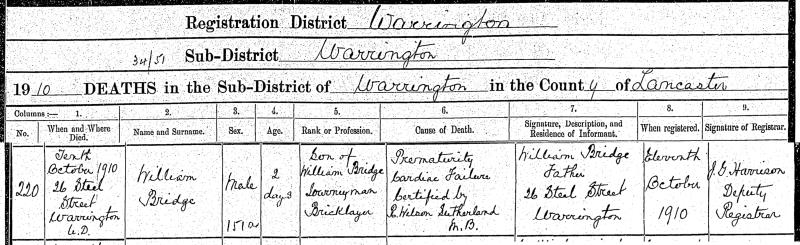 Registration District Warrington
34/51 Sub-District Warrington
1910 DEATHS in the Sub-District of Warrington in the County of Lancaster
Columns :— 1. 2. 3. 4. 5. 6. 7. 8. 9.
No. When and Where Died. Name and Surname. Sex. Age. Rank or Profession. Cause of Death. Signature, Description, and Residence of Informant. When registered. Signature of Registrar.
220
Tenth
October 1910
26 Steel
Street
Warrington
U.D.
William
Bridge
Male
151a
2
days
Son of
William Bridge
Journeyman
Bricklayer
Prematurity
Cardiac Failure
Certified by
Wilson Sutherland
M.B.
William Bridge
Father
26 Steel Street
Warrington
Eleventh
October
1910
J.G Harrison
Deputy
Registrar